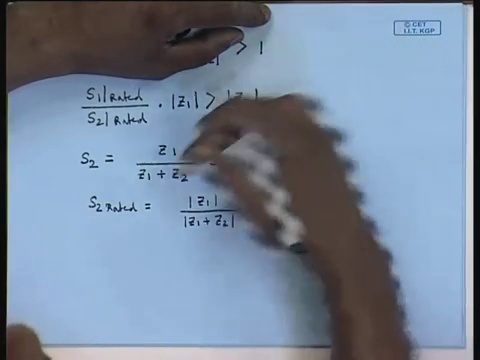 © CET
I.I.T. KGP
> 1
S1|Rated / S2|Rated . |Z1| >
S2 = Z1 / Z1 + Z2
S2 Rated = |Z1| / |Z1 + Z2|